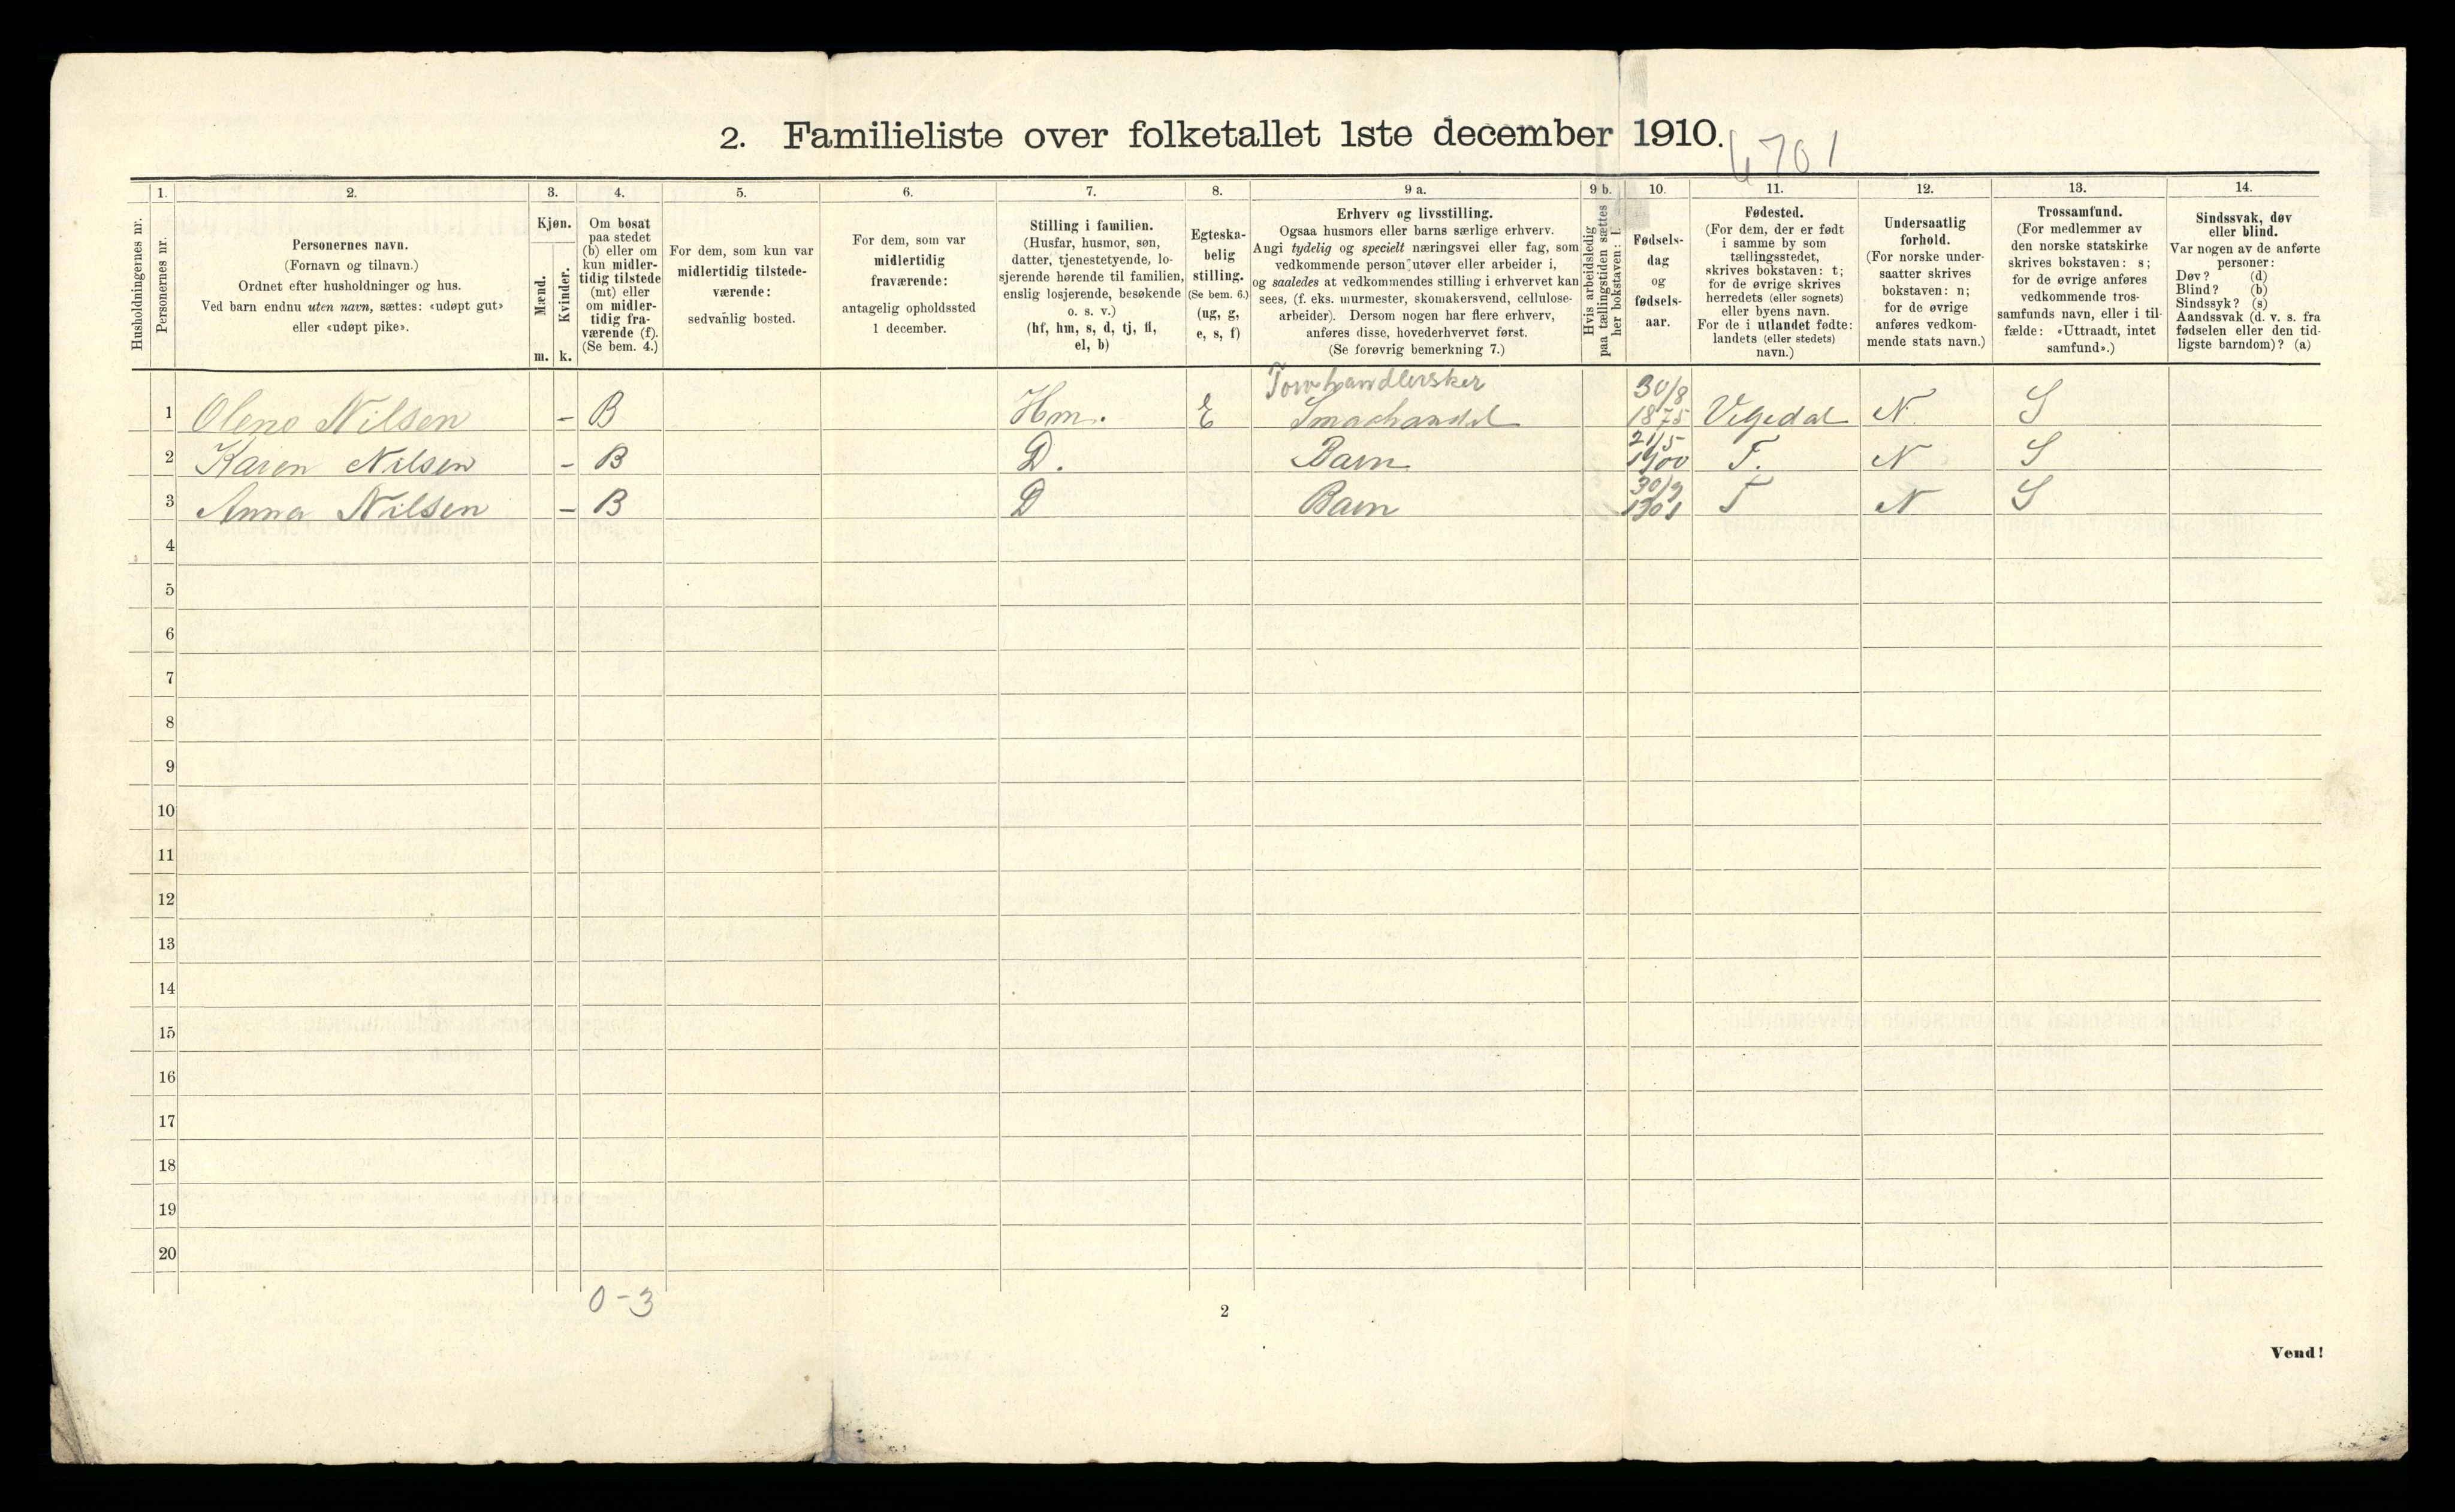 2. Familieliste over folketallet 1ste december 1910.
6701
Husholdningernes nr.
1.
Personernes nr.
2.
Personernes navn.
(Fornavn og tilnavn.)
Ordnet efter husholdninger og hus.
Ved barn endnu uten navn, sættes: «udøpt gut»
eller «udøpt pike».
3.
Kjøn.
Mænd.
Kvinder.
m. k.
4.
Om bosat
paa stedet
(b) eller om
kun midler-
tidig tilstede
(mt) eller
om midler-
tidig fra-
værende (f).
(Se bem. 4.)
5.
For dem, som kun var
midlertidig tilstede-
værende:
sedvanlig bosted.
6.
For dem, som var
midlertidig
fraværende:
antagelig opholdssted
1 december.
7.
Stilling i familien.
(Husfar, husmor, søn,
datter, tjenestetyende, lo-
sjerende hørende til familien,
enslig losjerende, besøkende
o. s. v.)
(hf, hm, s, d, tj, fl,
el, b)
8.
Egteska-
belig
stilling.
(Se bem. 6.)
(ug, g,
e, s, f)
9 a.
Erhverv og livsstilling.
Ogsaa husmors eller barns særlige erhverv.
Angi tydelig og specielt næringsvei eller fag, som
vedkommende person utøver eller arbeider i,
og saaledes at vedkommendes stilling i erhvervet kan
sees, (f. eks. murmester, skomakersvend, cellulose-
arbeider). Dersom nogen har flere erhverv,
anføres disse, hovederhvervet først.
(Se forøvrig bemerkning 7.)
9 b.
Hvis arbeidsledig
paa tællingstiden sættes
her bokstaven: l.
10.
Fødsels-
dag
og
fødsels-
aar.
11.
Fødested.
(For dem, der er født
i samme by som
tællingsstedet,
skrives bokstaven: t;
for de øvrige skrives
herredets (eller sognets)
eller byens navn.
For de i utlandet fødte:
landets (eller stedets)
navn.)
12.
Undersaatlig
forhold.
(For norske under-
saatter skrives
bokstaven: n;
for de øvrige
anføres vedkom-
mende stats navn.)
13.
Trossamfund.
(For medlemmer av
den norske statskirke
skrives bokstaven: s;
for de øvrige anføres
vedkommende tros-
samfunds navn, eller i til-
fælde: «Uttraadt, intet
samfund».)
14.
Sindssvak, døv
eller blind.
Var nogen av de anførte
personer:
Døv? (d)
Blind? (b)
Sindssyk? (s)
Aandssvak (d. v. s. fra
fødselen eller den tid-
ligste barndom)? (a)
Torvhandlersker 30/8
1 Olene Nilsen - B Hm. E Smaahandel 1875 Vegedal N. S
21/5
2 Karen Nilsen - B D. Barn 1900 T. N S
30/9
3 Anna Nilsen - B D Barn 1901 T N S
4
5
6
7
8
9
10
11
12
13
14
15
16
17
18
19
20
0-3
2
Vend!